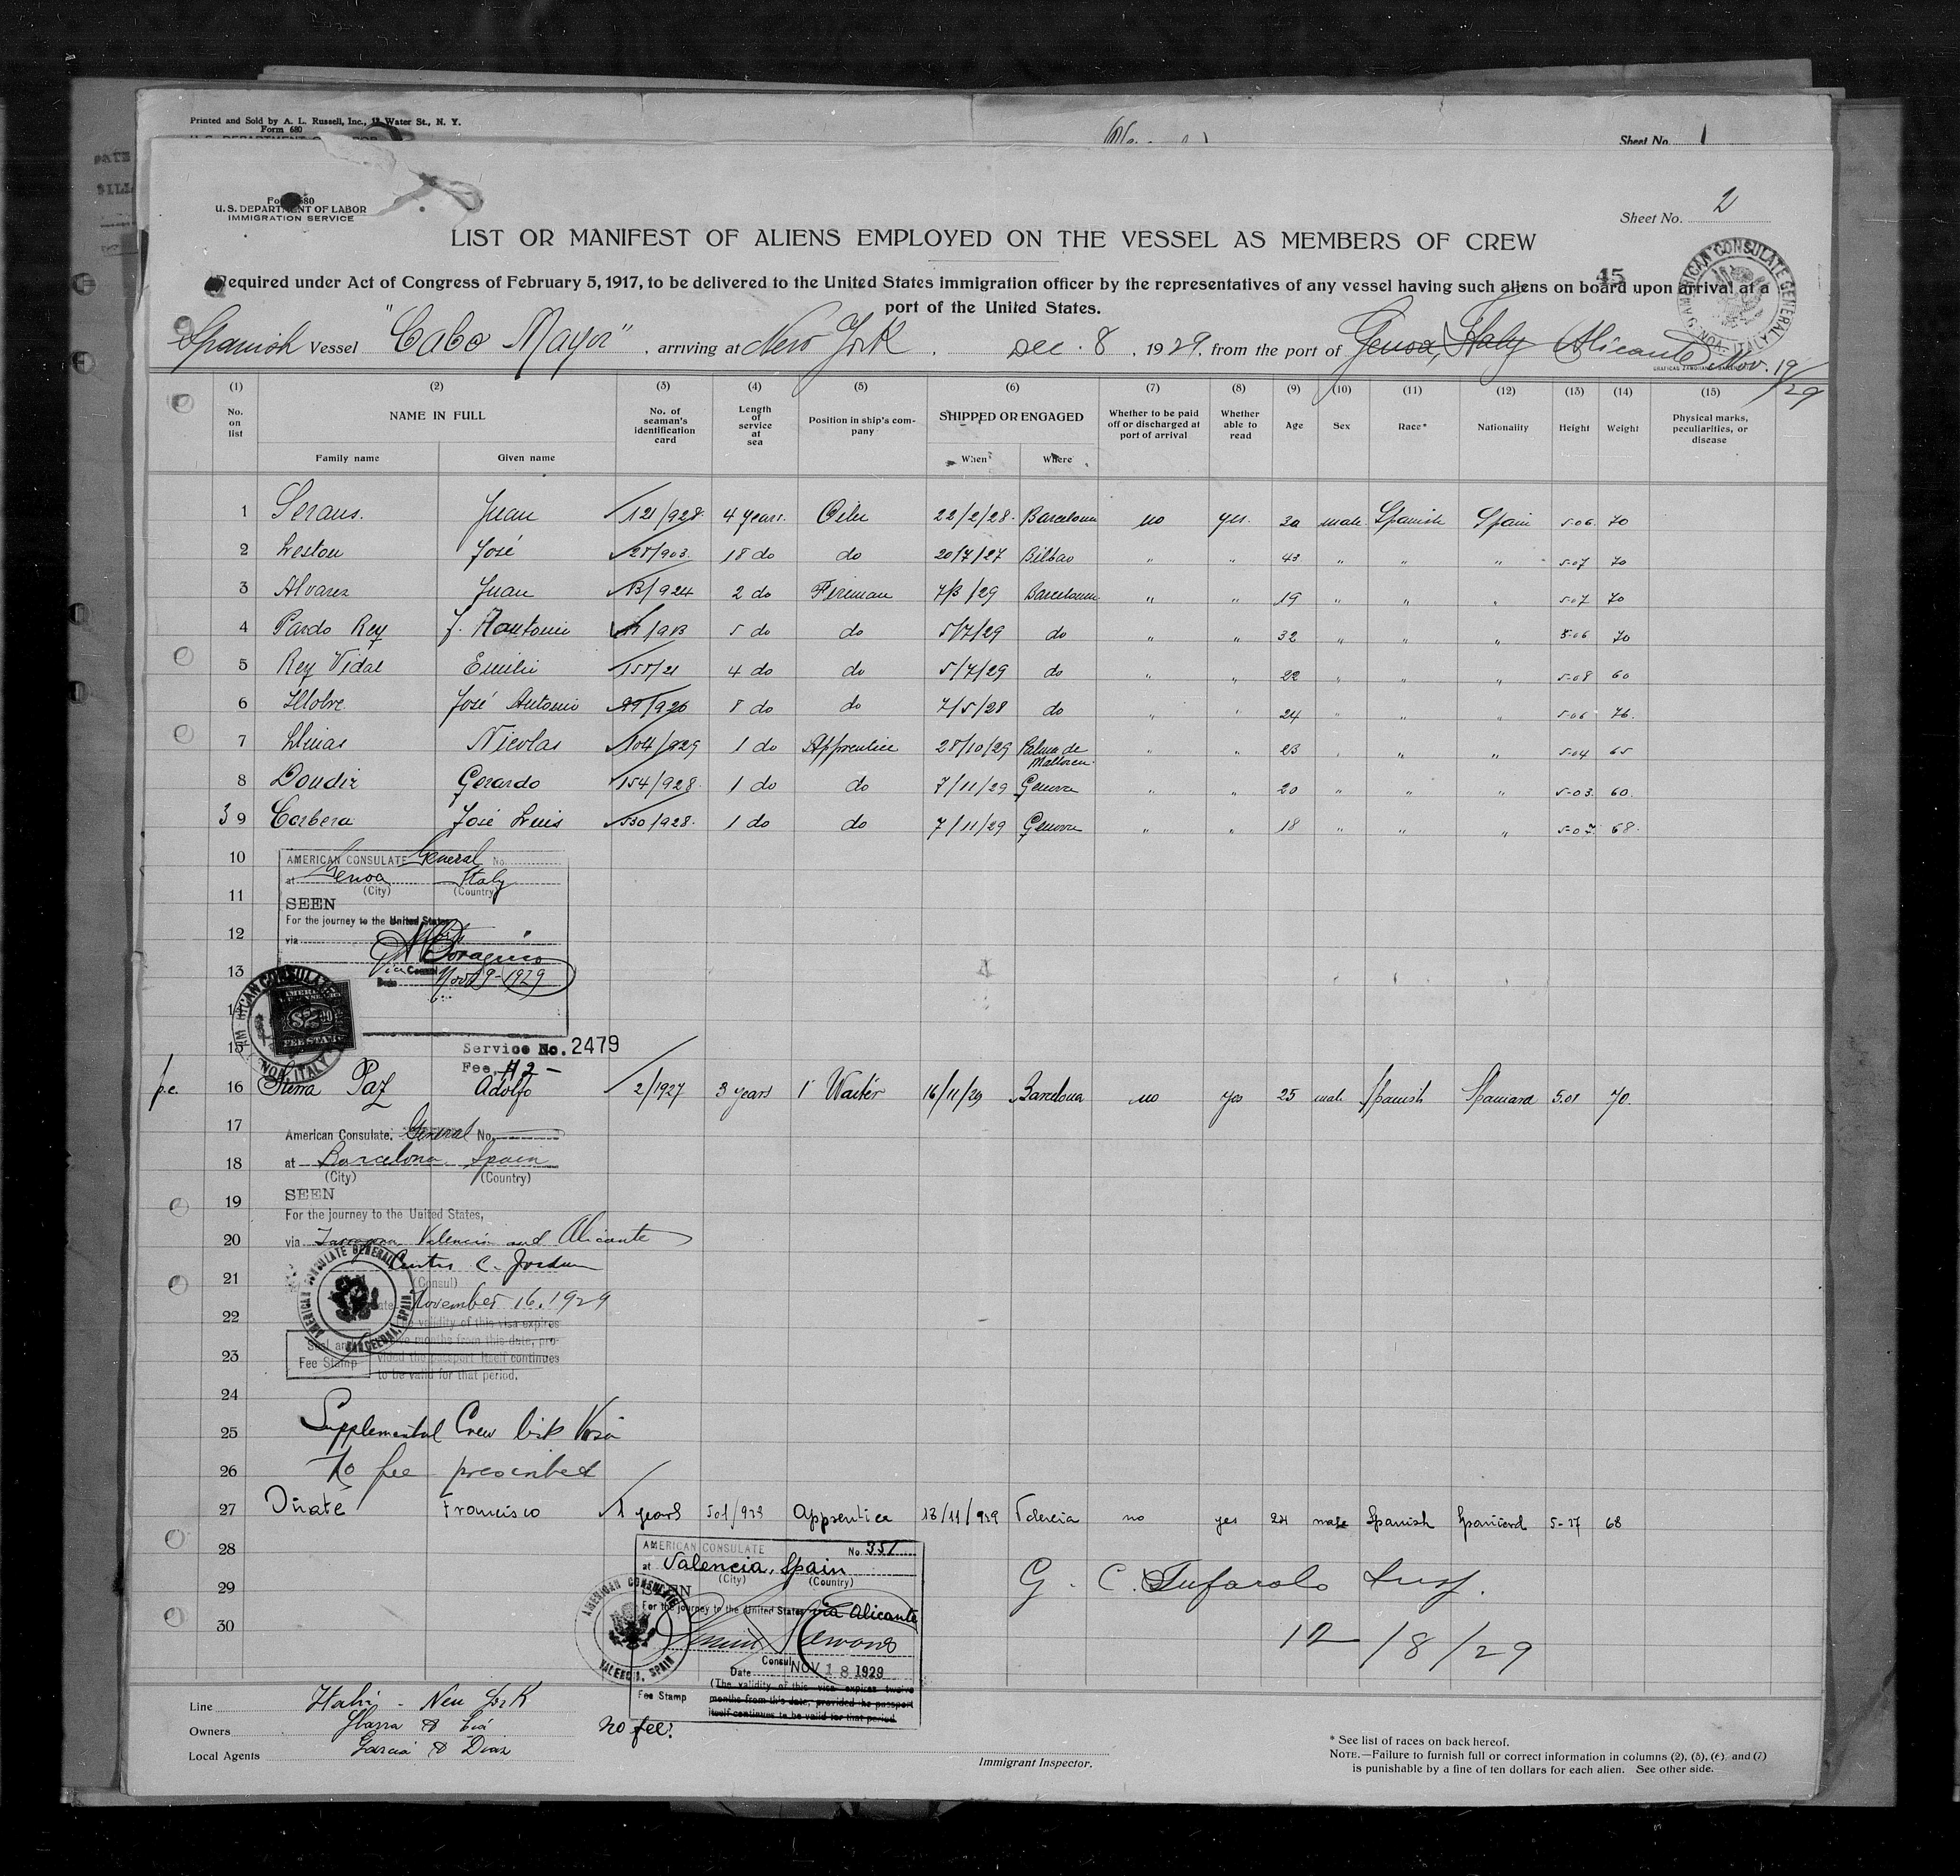 Printed and Sold by A. L. Russell, Inc., Water St., N. Y.
Form 680
Sheet No. 1
Form 680
U. S. DEPARTMENT OF LABOR
IMMIGRATION SERVICE
Sheet No. 2
LIST OR MANIFEST OF ALIENS EMPLOYED ON THE VESSEL AS MEMBERS OF CREW
45
Required under Act of Congress of February 5, 1917, to be delivered to the United States immigration officer by the representatives of any vessel having such aliens on board upon arrival at a
port of the United States.
AMERICAN CONSULATE GENERAL GENOA, ITALY
Spanish Vessel "Cabo Mayor", arriving at New York, Dec. 8, 1929, from the port of Genoa, Italy Alicante Nov. 19/29
(1) (2) (3) (4) (5) (6) (7) (8) (9) (10) (11) (12) (13) (14) (15)
No. on list NAME IN FULL No. of seaman's identification card Length of service at sea Position in ship's company SHIPPED OR ENGAGED Whether to be paid off or discharged at port of arrival Whether able to read Age Sex Race* Nationality Height Weight Physical marks, peculiarities, or disease
Family name Given name When Where
1 Juan 121/928 4 years. Oiler 22/2/28. Barcelona no yes. male Spanish Spain 5-06. 70
2 José 18 do do 20/7/27 Bilbao " " 43 " " " 5-07 70
3 Alvarez Juan 13/924 2 do Fireman 7/3/29 Barcelona " " 19 " " " 5-07 70
4 Pardo Rey J. Antonio 5 do do 5/7/29 do " " 32 " " " 5-06 70
5 Rey Vidal Emilio 155/21 4 do do 5/7/29 do " " 22 " " " 5-08 60
6 José Antonio 99/926 8 do do 7/5/28 do " " 24 " " " 5-06 76.
7 Llinas Nicolas 104/929 1 do Apprentice 28/10/29 Palma de Mallorca " " 23 " " " 5-04 65
8 Gerardo 154/928. 1 do do 7/11/29 Genova " " 20 " " " 5-03. 60.
3 9 Corbera José Luis 530/928. 1 do do 7/11/29 Genova " " 18 " " " 68.
10
AMERICAN CONSULATE General No.
at Genoa Italy
(City) (Country)
11
SEEN
For the journey to the United States
12
via
13
Vice Consul
Date Nov. 9-1929
14
AMERICAN CONSULAR SERVICE $2.00 FEE STAMP
15
Service No. 2479
Fee, $2 -
p.c. 16 Sierra Paz Adolfo 2/1927 3 years 1° Waiter 16/11/29 Barcelona no yes 25 male Spanish Spaniard 5.01 70.
17
American Consulate, General No.
18
at Barcelona, Spain
(City) (Country)
19
SEEN
For the journey to the United States,
20
via Tarragona, Valencia and Alicante
Curtis C. Jordan
21
(Consul)
Date November 16, 1929
AMERICAN CONSULATE GENERAL BARCELONA, SPAIN
22
The validity of this visa expires
twelve months from this date, pro-
23
vided the passport itself continues
to be valid for that period.
Seal and
Fee Stamp
24
25 Supplemental Crew list Visa
26 No fee prescribed
27 Oñate Francisco 1 years 501/923 Apprentice 18/11/929 Valencia no yes 24 male Spanish Spaniard 68
28
AMERICAN CONSULATE No. 351
at Valencia, Spain
(City) (Country)
29
SEEN
For the journey to the United States via Alicante
30
Consul
Date NOV 18 1929
(The validity of this visa expires twelve
months from this date, provided the passport
itself continues to be valid for that period.
Fee Stamp
no fee.
AMERICAN CONSULATE VALENCIA, SPAIN
G. C. Tufarolo Insp.
12/8/29
Line Italy - New York
Owners Ybarra & Cia
Local Agents Garcia & Diaz
Immigrant Inspector.
* See list of races on back hereof.
NOTE.—Failure to furnish full or correct information in columns (2), (5), (6) and (7)
is punishable by a fine of ten dollars for each alien. See other side.